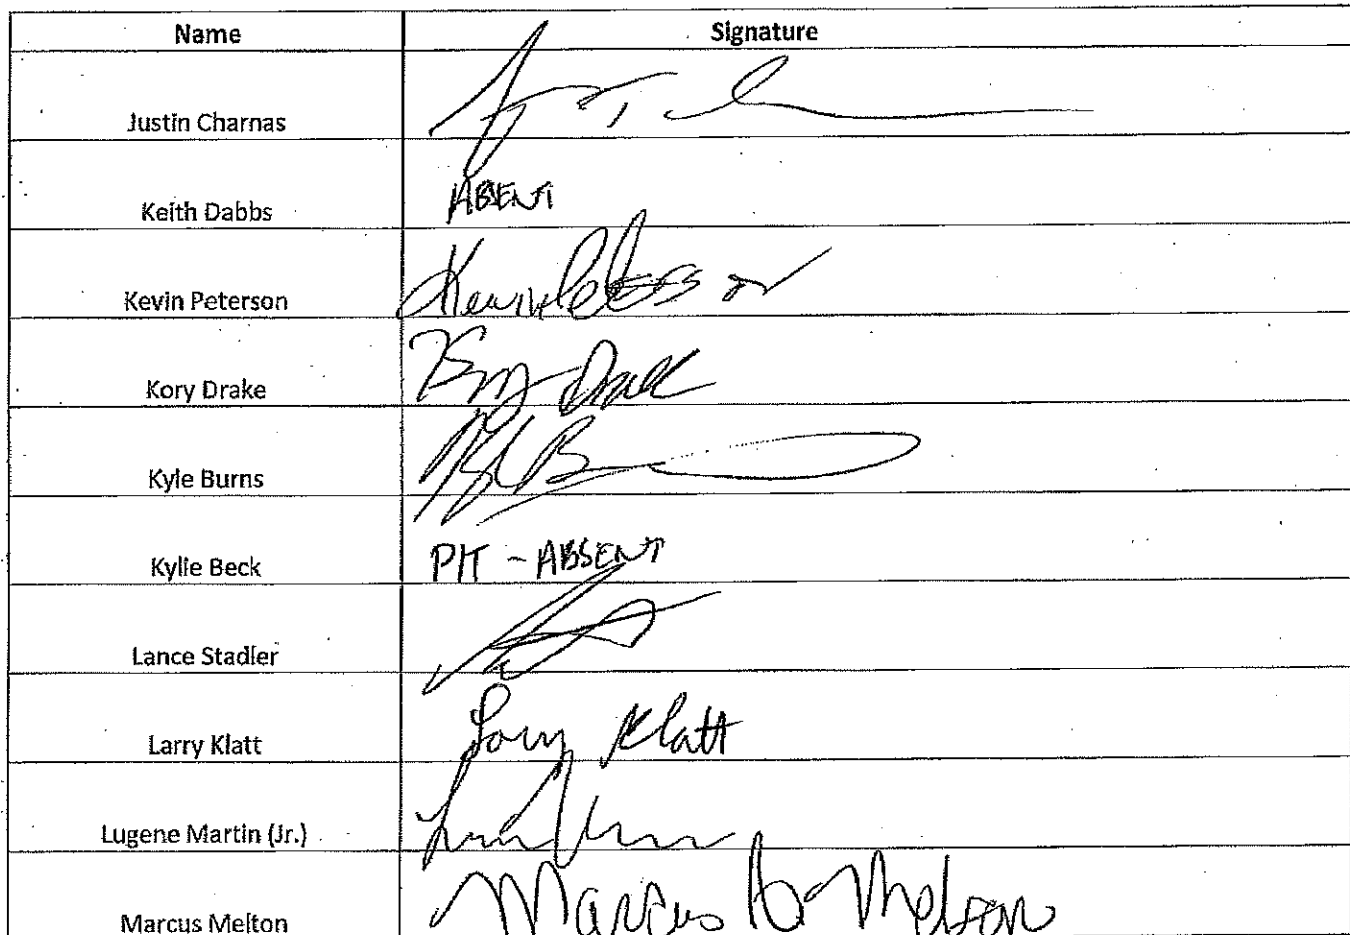 Name Signature
Justin Charnas
Keith Dabbs ABSENT
Kevin Peterson Kevin Peterson
Kory Drake Kory Drake
Kyle Burns
Kylie Beck PIT - ABSENT
Lance Stadler
Larry Klatt Larry Klatt
Lugene Martin (Jr.)
Marcus Melton Marcus A. Melton